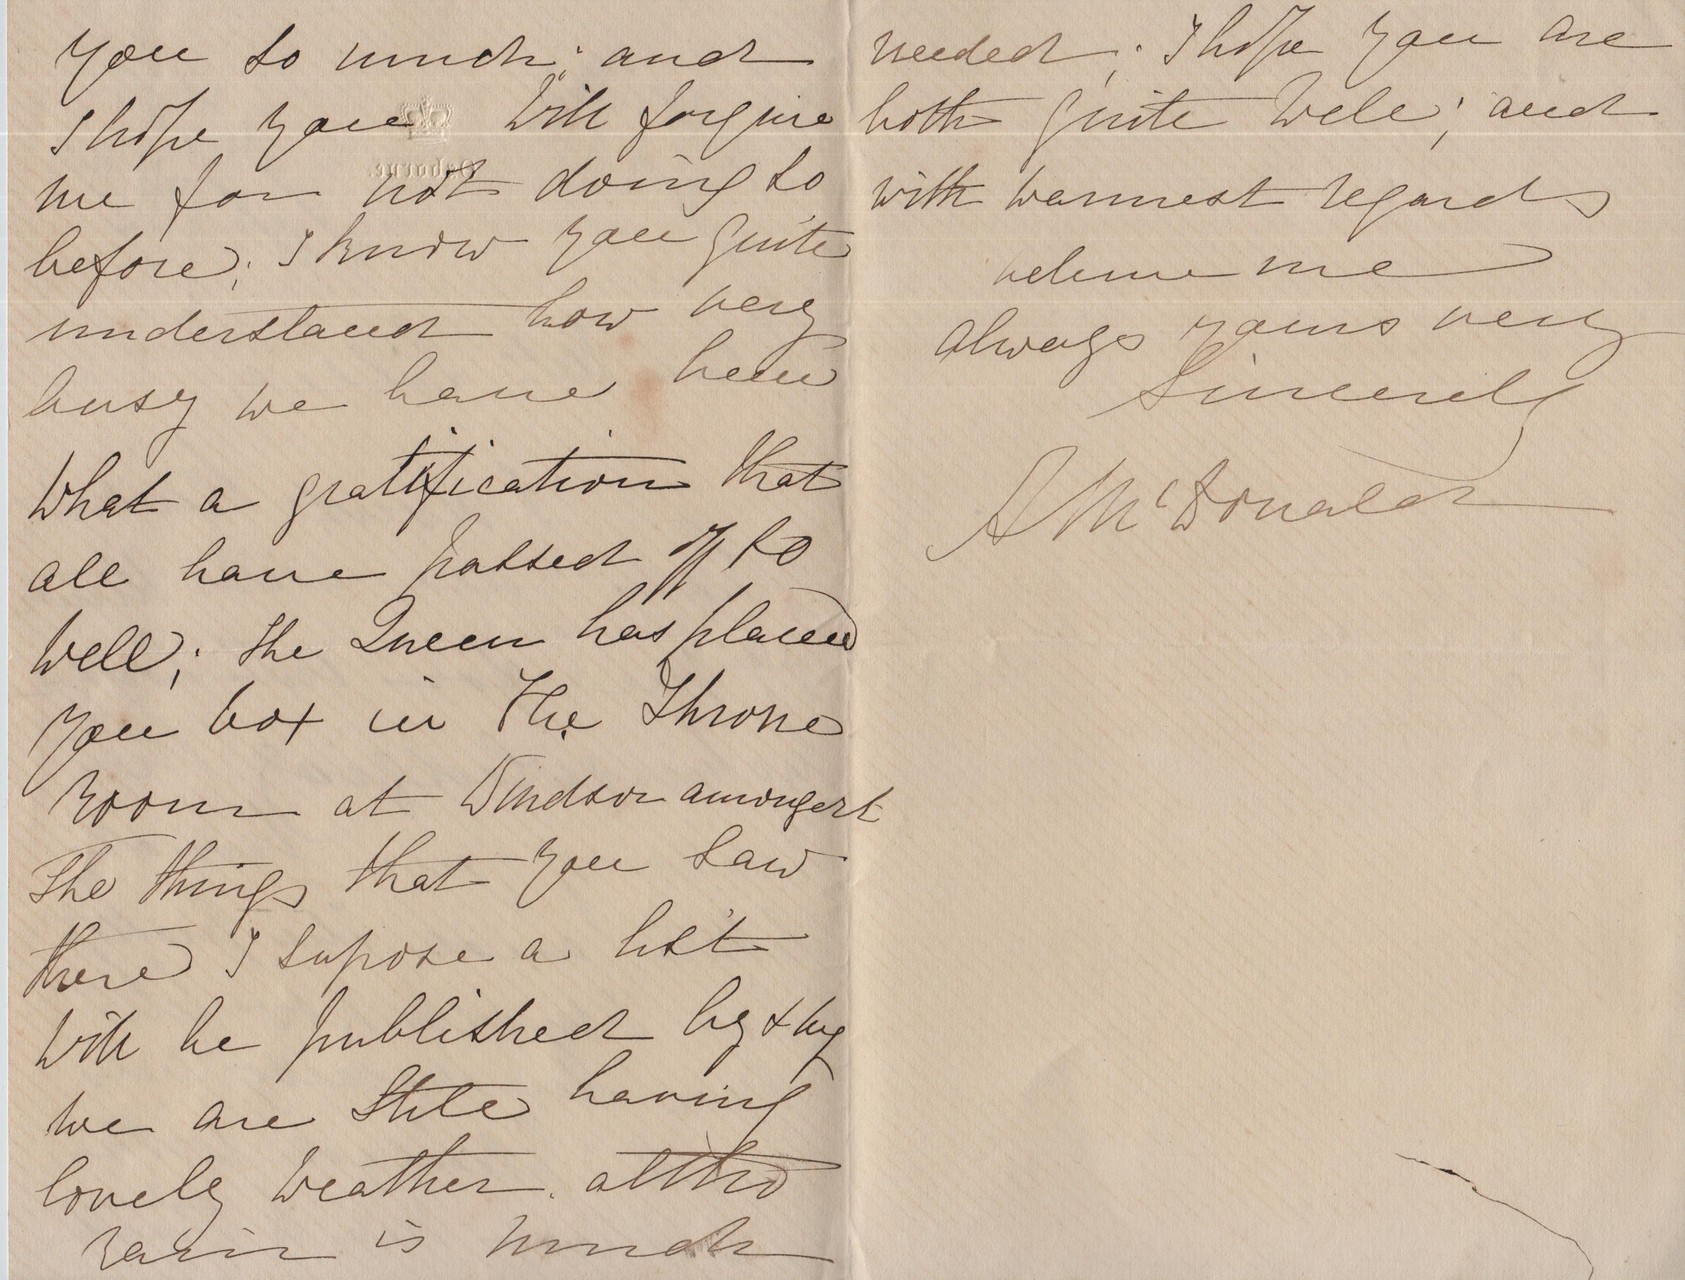 you so much; and
I hope you will forgive
me for not doing so
before; I know you quite
understand how very
busy we have been
What a gratification that
all have passed off so
well; the Queen has placed
you box in The Throne
room at Windsor amongest
The things that you saw
there I supose a list
will be published by & by
we are still having
lovely weather. altho
rain is much
Osborne.
needed; I hope you are
both quite well; and
with warmest regards
believe me
always yours very
Sincerely
A McDonald